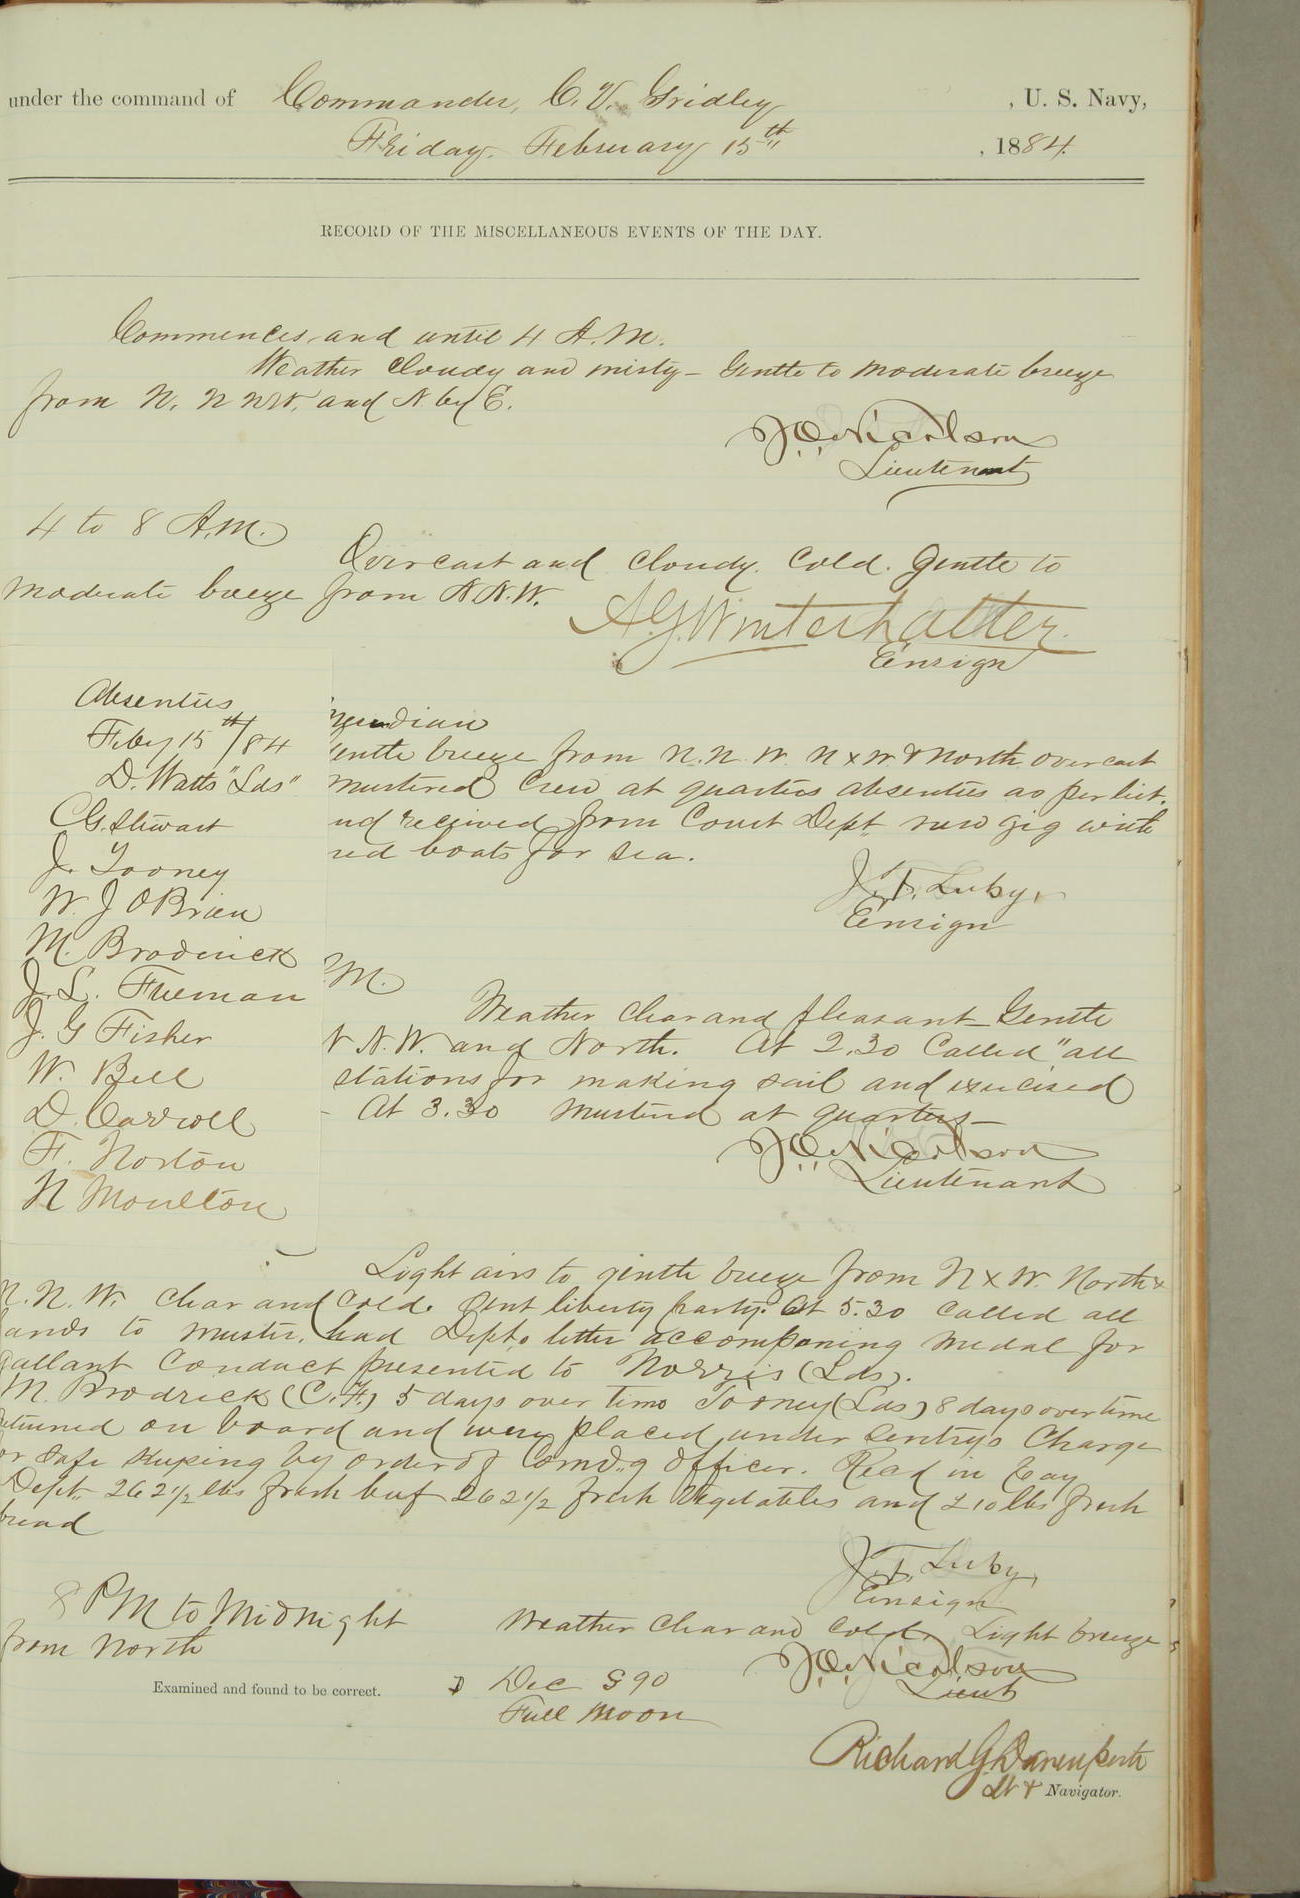 under the command of Commander, C. V. Gridley, U. S. Navy,
Friday. February 15th, 1884.
RECORD OF THE MISCELLANEOUS EVENTS OF THE DAY.
Commences and until 4 A.M.
Weather cloudy and misty – Gentle to moderate breeze
from N. NNW. and N. by E.
Nicolson
Lieutenant
4 to 8 A.M.
Overcast and cloudy. Cold. Gentle to
moderate breeze from N.N.W.
A.G. Winterhalter.
Ensign
Absentees
Feby 15th/84
D. Watts "Lds"
C.G. Stewart
J. Tooney
W. J OBrien
M. Broderick
J. L. Freeman
J. G Fisher
W. Bell
D. Carroll
F. Norton
N Moulton
meridian
entle breeze from N.N.W. N x W & North overcast
mustered crew at quarters absentees as per list.
nd received from Const Dept new gig with
red boats for sea.
J. T. Luby,
Ensign
M.
Weather clear and pleasant – Gentle
N.N.W. and North. At 2.30 Called "all
stations for making sail and exercised
– At 3.30 mustered at quarters –
Nicolson
Lieutenant
Light airs to gentle breeze from N x W. North &
N. N. W. clear and cold. Sent liberty party. At 5.30 called all
ands to muster, had Dept. letter accompaning medal for
gallant conduct presented to Norris (Lds).
M. Brodrick (C.H.) 5 days over time Tooney (Lds) 8 days over time
eturned on board and were placed under Sentrys Charge
or safe keeping by order of Comd'g Officer. Recd in Pay
Dept. 262 1/2 lbs fresh beef 262 1/2 fresh Vegetables and 210 lbs fresh
bread
J. T. Luby,
Ensign
8 PM to Midnight
Weather clear and cold. Light breeze
from North
Nicolson
Lieut
Examined and found to be correct.
Dec S 90
Full Moon
Richard G. Davenport
Lt & Navigator.